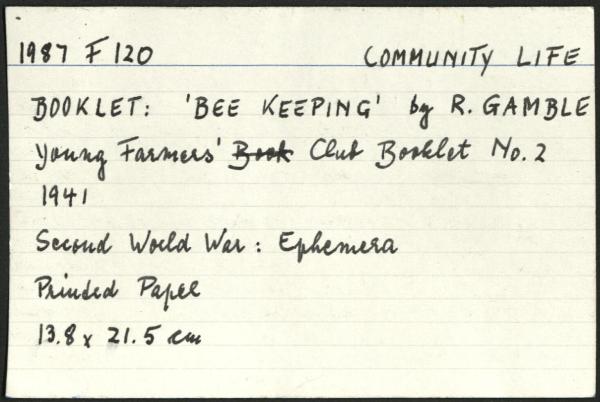 1987 F 120 COMMUNITY LIFE
BOOKLET: 'BEE KEEPING' by R. GAMBLE
Young Farmers' Book Club Booklet No. 2
1941
Second World War: Ephemera
Printed Paper
13.8 x 21.5 cm